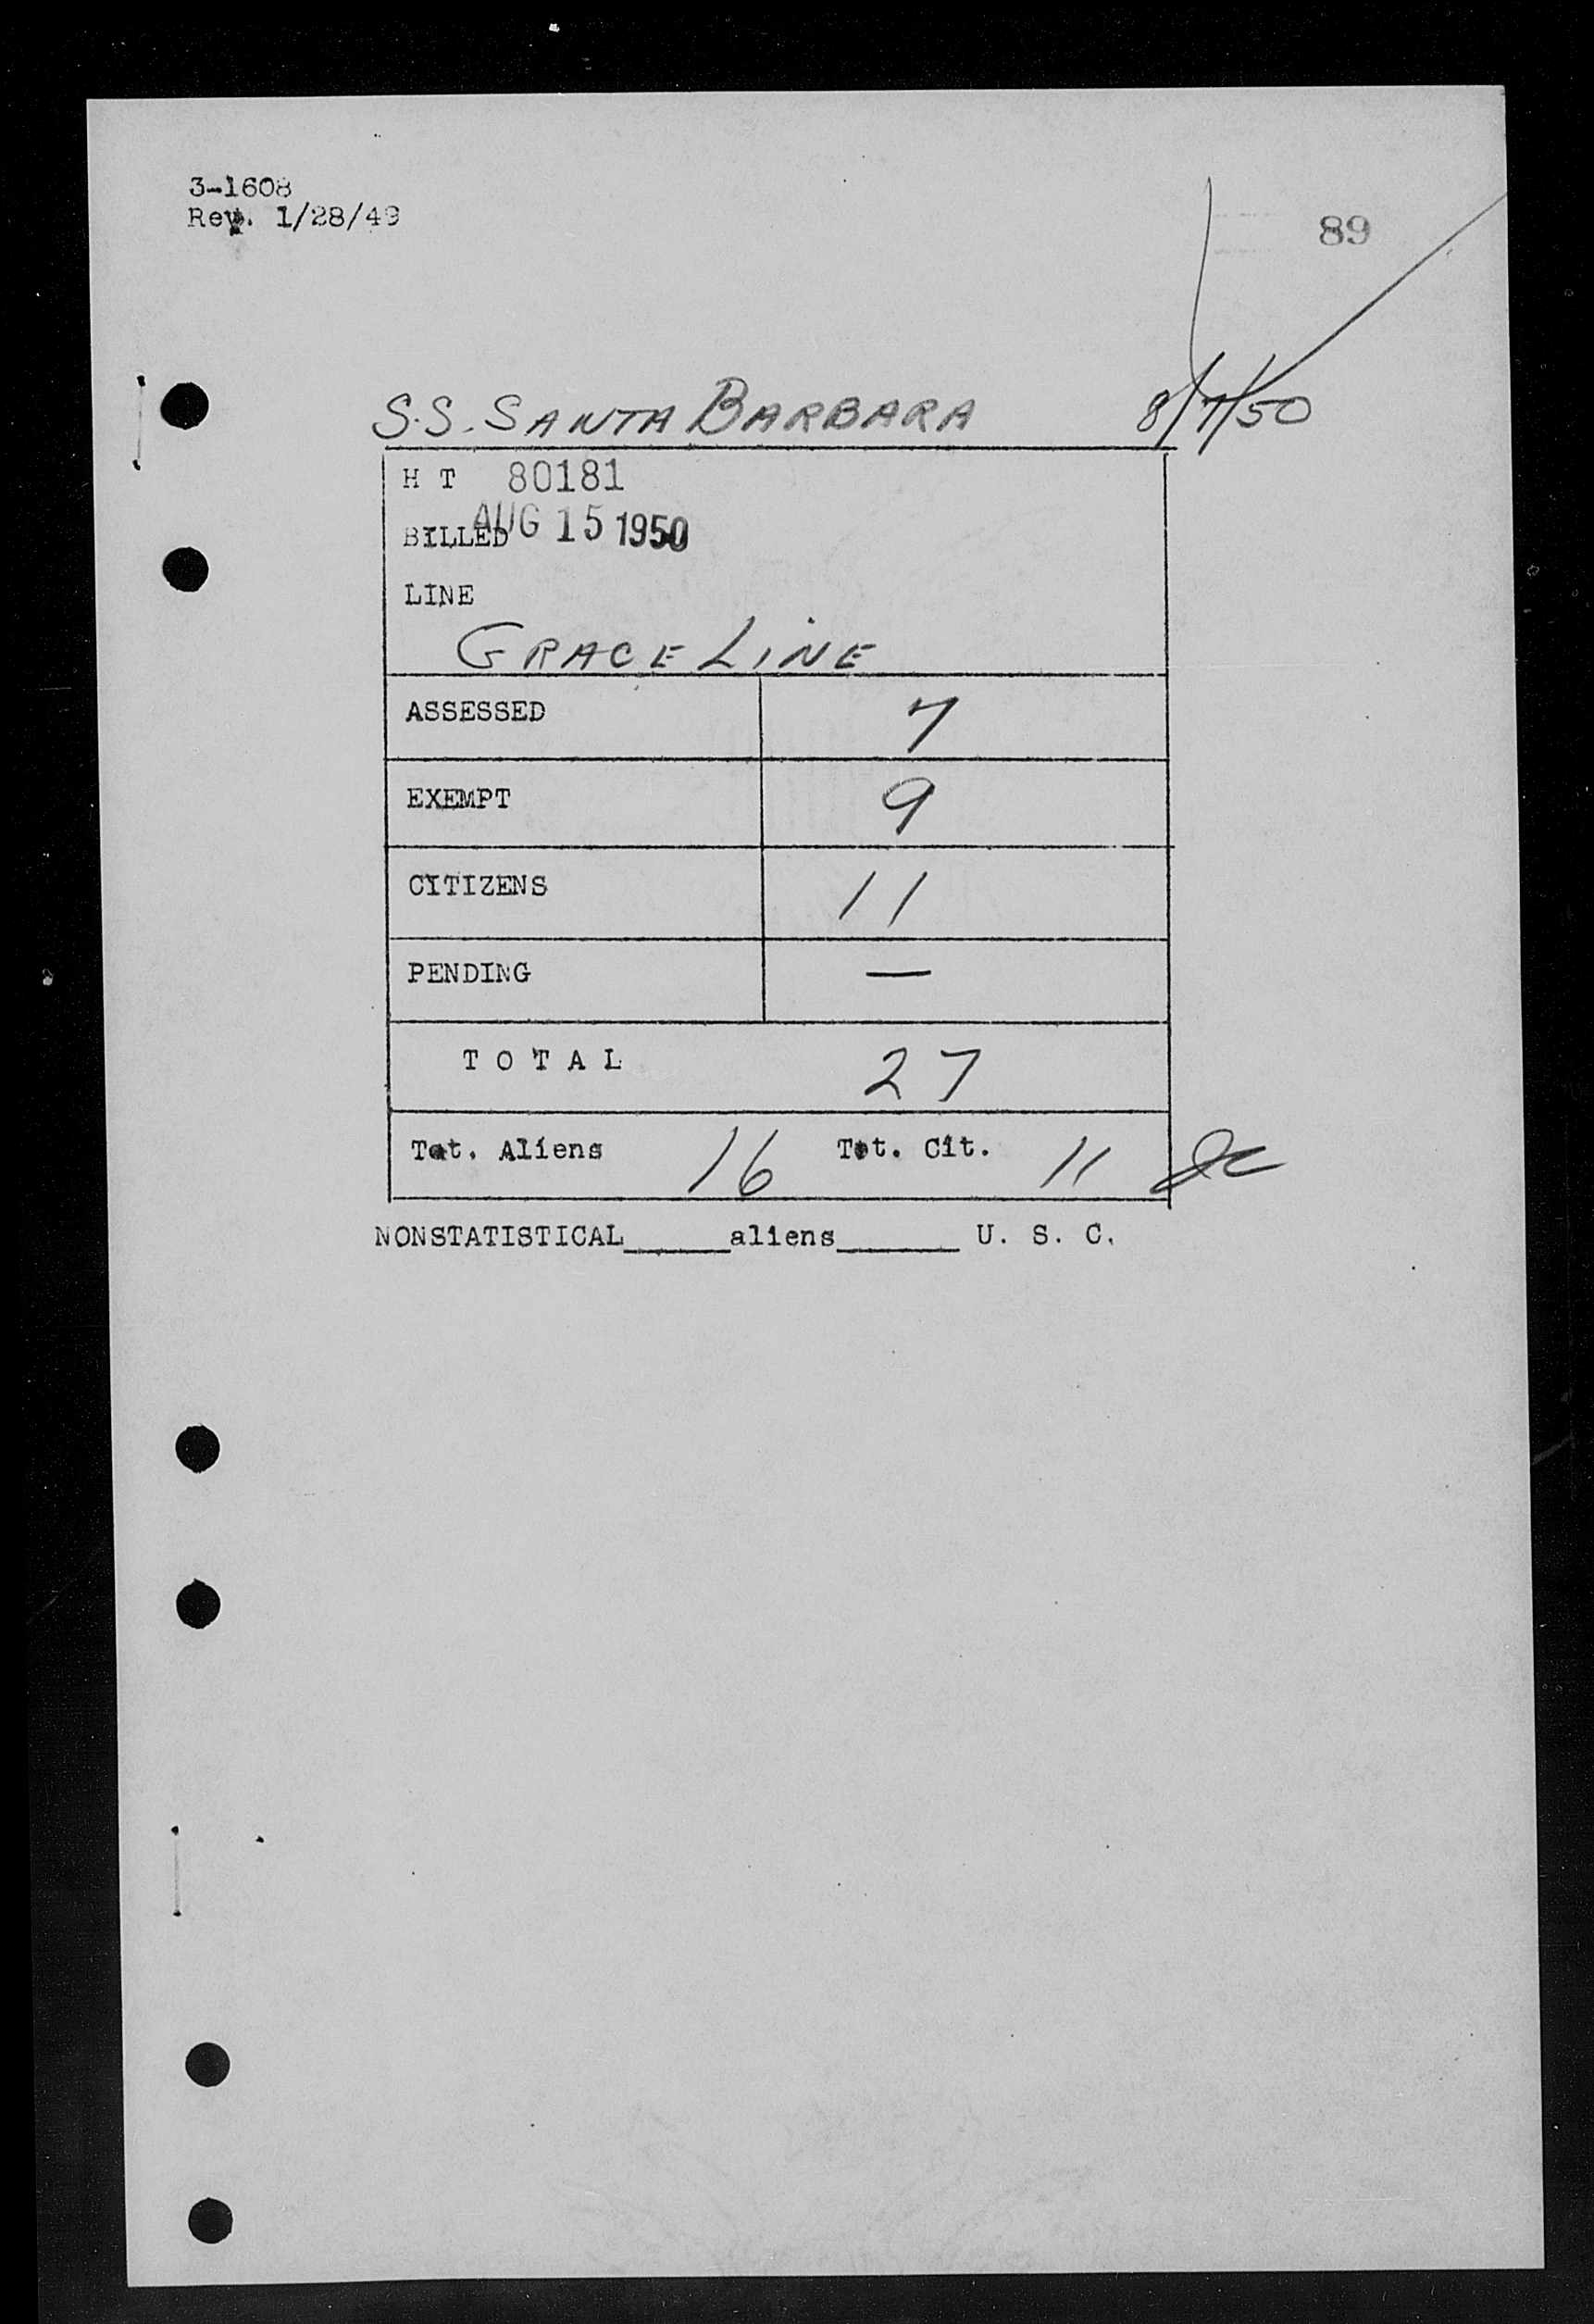 3-1608
Rev. 1/28/49
89
S.S. SANTA BARBARA 8/7/50
H T 80181
BILLED AUG 15 1950
LINE
GRACE LINE
ASSESSED 7
EXEMPT 9
CITIZENS 11
PENDING —
T O T A L 27
Tot. Aliens 16 Tot. Cit. 11
NONSTATISTICAL______aliens_______ U. S. C.